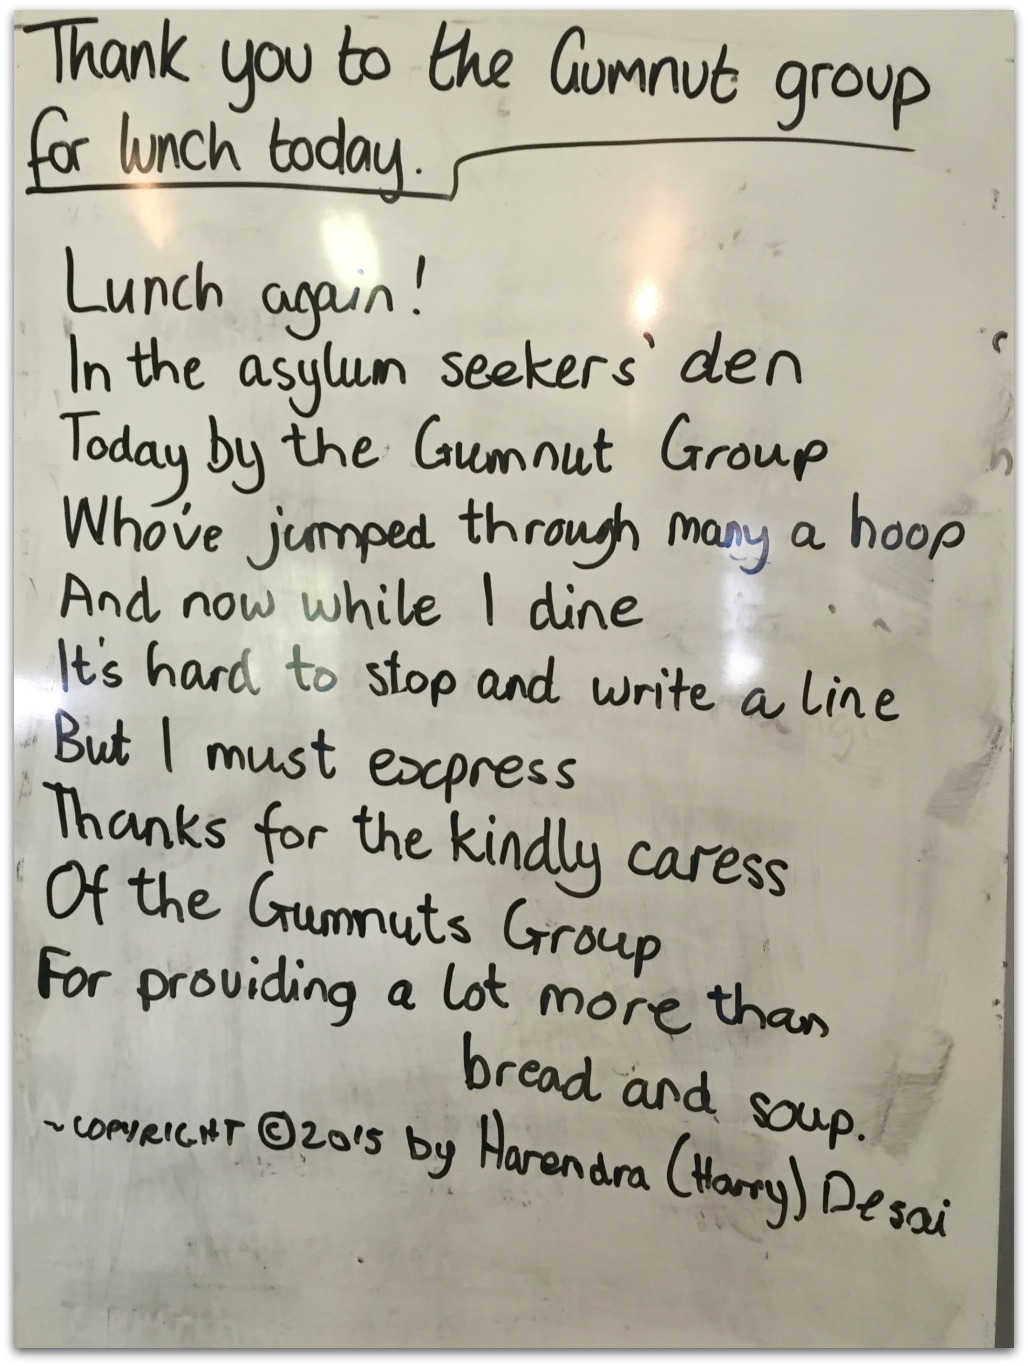 Thank you to the Gumnut group
for lunch today.
Lunch again!
In the asylum seekers' den
Today by the Gumnut Group
Who've jumped through many a hoop
And now while I dine
It's hard to stop and write a line
But I must express
Thanks for the kindly caress
Of the Gumnuts Group
For providing a lot more than
bread and soup.
~COPYRIGHT ©2015 by Harendra (Harry) Desai